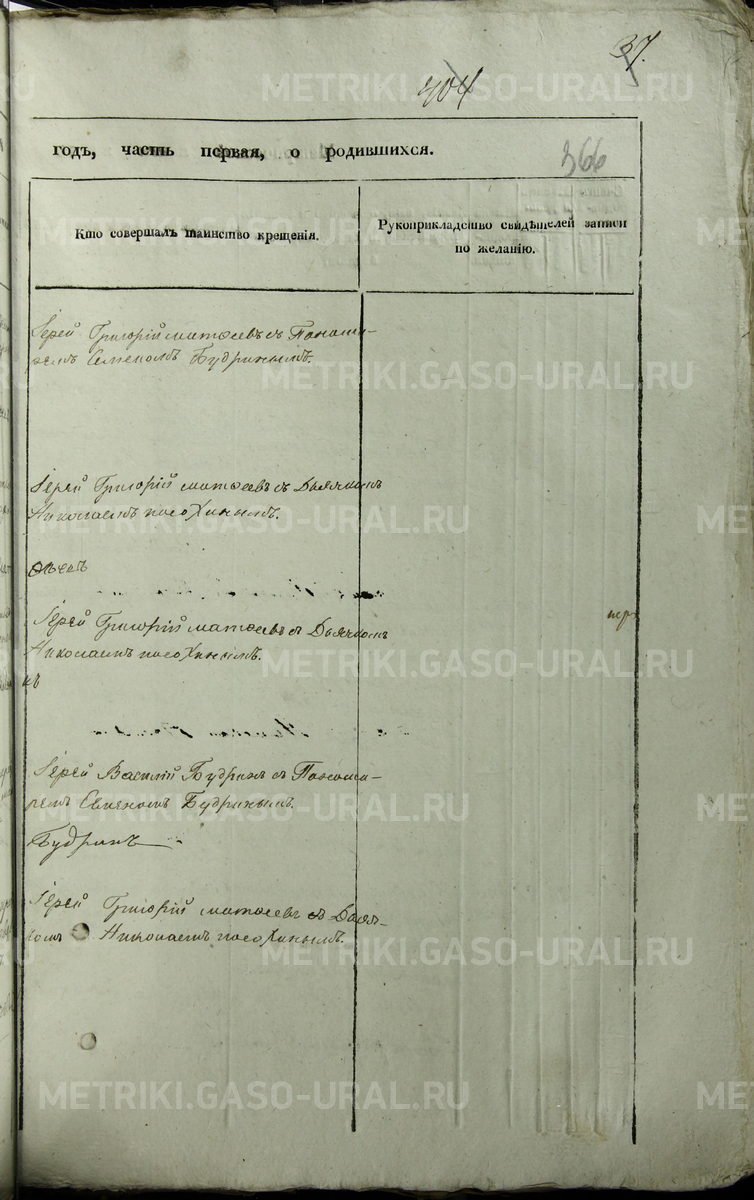 37.
404
366
годъ, часть первая, о родившихся.
Кто совершалъ таинство крещенія.
Рукоприкладство свидѣтелей записи
по желанію.
Іерей Григорій Матѳеевъ съ Понома-
ремъ Семеномъ Будринымъ.
Іерей Григорій Матѳеевъ съ Дьячкомъ
Николаемъ Посохинымъ.
Іерей Григорій Матѳеевъ съ Дьячкомъ
Николаемъ Посохинымъ.
Іерей Василій Будринъ съ Понома-
ремъ Семеномъ Будринымъ.
Будринъ
Іерей Григорій Матѳеевъ съ Дьяч-
комъ Николаемъ Посохинымъ.
METRIKI.GASO-URAL.RU